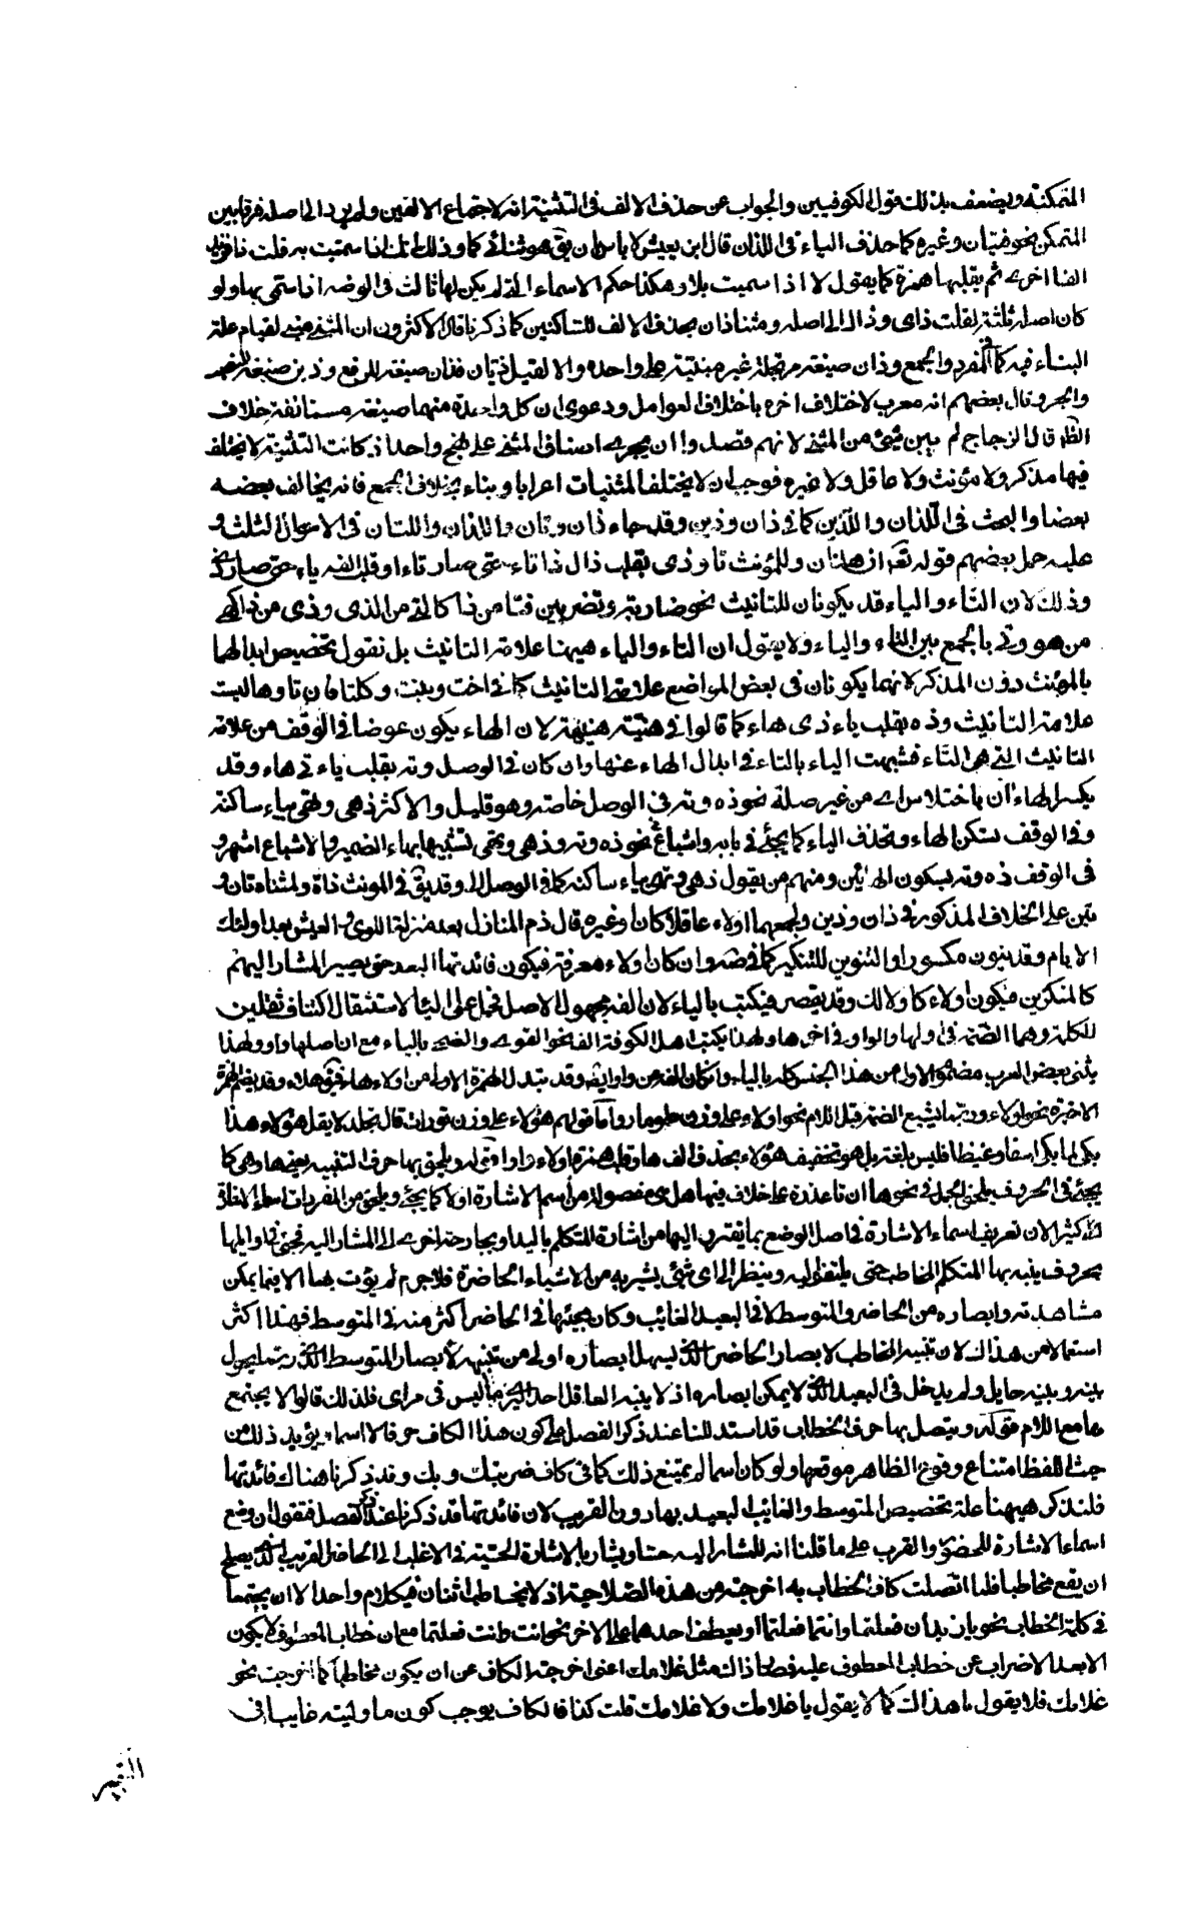 المتمكنة ويضعف بذلك قول الكوفيين والجواب عن حذف الالف فى التثنية انه لاجتماع الالفين ولم يرد الى اصله فرقا بين
المتمكن نحو فتيان وغيره كما حذف الياء فى اللذان قال ابن يعيش لا باس ان يق هو ثنائى كما وذلك انك اذا سميت به قلت ذا فتزيد
الفا اخرى ثم يقلبها همزة كما يقول لا اذا سميت بلا وهكذا حكم الاسماء التى لم يكن لها ثالث فى الوضع اذا سمى بها ولو
كان اصله ثلثة لقلت ذاى وذا الى اصله ومثناه ذان بحذف الالف للساكنين كما ذكرنا قال الاكثرون ان المثنى مبنى لقيام علة
البناء فيه كما فى المفرد والجمع وذان صيغة مرتجلة غير مبنية على واحده والا لقيل ذيان فذان صيغة للرفع وذين صيغة للنصب
والجر وقال بعضهم انه معرب لاختلاف اخره باختلاف العوامل ودعوى ان كل واحدة منهما صيغة مستانفة خلاف
الظ قال الزجاج لم يبن شئ من المثنى لانهم قصدوا ان يجرى اصناف المثنى على نهج واحد اذ كانت التثنية لا يختلف
فيها مذكر ولا مؤنث ولا عاقل ولا غيره فوجب ان لا يختلف المثنيات اعرابا وبناء بخلاف الجمع فانه يخالف بعضه
بعضا والبحث فى اللذان واللذين كما فى ذان وذين وقد جاء ذان وتان واللذان واللتان فى الاحوال الثلث و
عليه حمل بعضهم قوله تعا ان هذان وللمؤنث تا وذى بقلب ذال ذا تاء حتى صار تاء او قلب الفه ياء حتى صار ذى
وذلك لان التاء والياء قد يكونان للتانيث نحو ضاربة وتضربين فتا من ذا كالتى من الذى وذى من ذا كهى
من هو وتى بالجمع بين التاء والياء ولا يقول ان التاء والياء هيهنا علامة التانيث بل نقول تخصيص ابدالهما
بالمؤنث دون المذكر لانهما يكونان فى بعض المواضع علامة التانيث كما فى اخت وبنت وكلتا فان تاوها ليست
علامة التانيث وذه بقلب ياء ذى هاء كما قالوا فى هنية هنيهة لان الهاء يكون عوضا فى الوقف من علامة
التانيث التى هى التاء فشبهت الياء بالتاء فى ابدال الهاء عنها وان كان فى الوصل وته بقلب ياء تى هاء وقد
يكسر الهاءان باختلاس اى من غير صلة نحو ذه وته فى الوصل خاصة وهو قليل والاكثر ذهى وتهى بياء ساكنة
وفى الوقف تسكن الهاء وتحذف الياء كما يجئ فى بابه واشباع نحو ذه وته وذهى وتهى تشبيها بهاء الضمير والاشباع اشهر و
فى الوقف ذه وته بسكون الهائين ومنهم من يقول ذهى وتهى بياء ساكنة كما فى الوصل وقد يق فى المونث ذاة ولمثناه تان و
تين على الخلاف المذكور فى ذان وذين ولجمعهما اولاء عاقلا كان او غيره قال ذم المنازل بعد منزلة اللوى والعيش بعد اولئك
الايام وقد ينون مكسورا والتنوين للتنكير كما فى صه وان كان اولاء معرفة فيكون فائدتها البعد حتى يصير المشار اليهم
كالمنكرين فيكون اولاء كاولالك وقد يقصر فيكتب بالياء لان الفه مجهول الاصل فحمل على الياء لاستثقال اكتناف ثقلين
للكلمة وهما الضمة فى اولها والواو فى اخرها ولهذا يكتب اهل الكوفة الف نحو القوى والضحى بالياء مع ان اصلها واو ولهذا
يثنى بعض العرب مضموم الاول من هذا الجنس كله بالياء وان كان الفه عن واو ايضا وقد تبدل الهمزة الاولى من اولاء هاء فيق هلاء وقد يضم الهمزة
الاخيرة نحو اولاء وربما يشبع الضمة قبل اللام نحو اولاء على وزن طومار واما قولهم هؤلاء على وزن توراب قال تجلد لا يقل هؤلاء هذا
بكى لما بكى اسفا وغيظا فليس بلغة بل هو تخفيف هؤلاء بحذف الف ها وقلب همزة اولاء واوا ويلحق بها حرف التنبيه يعنى ها وهى كما
يجئ فى الحروف يلحق الجمل فى نحو ها ان تا عذرة على خلاف فيها هل هى مفصولة من اسم الاشارة او لا كما يجئ ويلحق من المفردات اسماء الاشارة
كثيرا لان تعريف اسماء الاشارة فى اصل الوضع بما يقترن اليها من اشارة المتكلم باليد او بجارحة اخرى الى المشار اليه فجئ فى اوايلها
بحروف ينبه بها المتكلم المخاطب حتى يلتفت اليه وينظر الى اى شئ يشير به من الاشياء الحاضرة فلاجرم لم يؤت بها الا فيما يمكن
مشاهدته وابصاره من الحاضر والمتوسط لا فى البعيد الغائب وكان مجيئها فى الحاضر اكثر منه فى المتوسط فهذا اكثر
استعمالا من هذاك لان تنبيه المخاطب لابصار الحاضر الذى يسهل ابصاره اولى من تنبيهه لابصار المتوسط الذى ربما يحول
بينه وبينه حايل ولم يدخل فى البعيد الذى لا يمكن ابصاره اذ لا ينبه العاقل احدا ليرى ما ليس فى مراى فلذلك قالوا لا يجتمع
ها مع اللام قوله ويتصل بها حرف الخطاب قد استدللنا عند ذكر الفصل على كون هذا الكاف حرفا لا اسما ويؤيد ذلك من
حيث اللفظ امتناع وقوع الظاهر موقعها ولو كان اسما لم يمتنع ذلك كما فى كاف ضربتك وبك وقد ذكرنا هناك فائدتها
فلنذكر هيهنا علة تخصيص المتوسط والغائب البعيد بها دون القريب لان فائدتها قد ذكرنا عند ذكر الفصل فنقول ان وضع
اسماء الاشارة للحضور والقرب على ما قلنا انه للمشار اليه حسا ويشار بالاشارة الحسية فى الاغلب الى الحاضر القريب الذى يصلح
ان يقع مخاطبا فلما اتصلت كاف الخطاب به اخرجته من هذه الصلاحية اذ لا يخاطب اثنان فى كلام واحد الا ان يجتمعا
فى كلمة الخطاب نحو يا زيدان فعلتما وانتما فعلتما او يعطف احدهما على الاخر نحو انت وانت فعلتما مع ان خطاب المعطوف لا يكون
الا بعد الاضراب عن خطاب المعطوف عليه فصار ذاك مثل غلامك اعنى اخرجته الكاف عن ان يكون مخاطبا كما اخرجت نحو
غلامك فلا يقول يا هذاك كما لا يقول يا غلامك ولا غلامك قلت كذا فالكاف يوجب كون ما وليته غايبا فى
التعبير